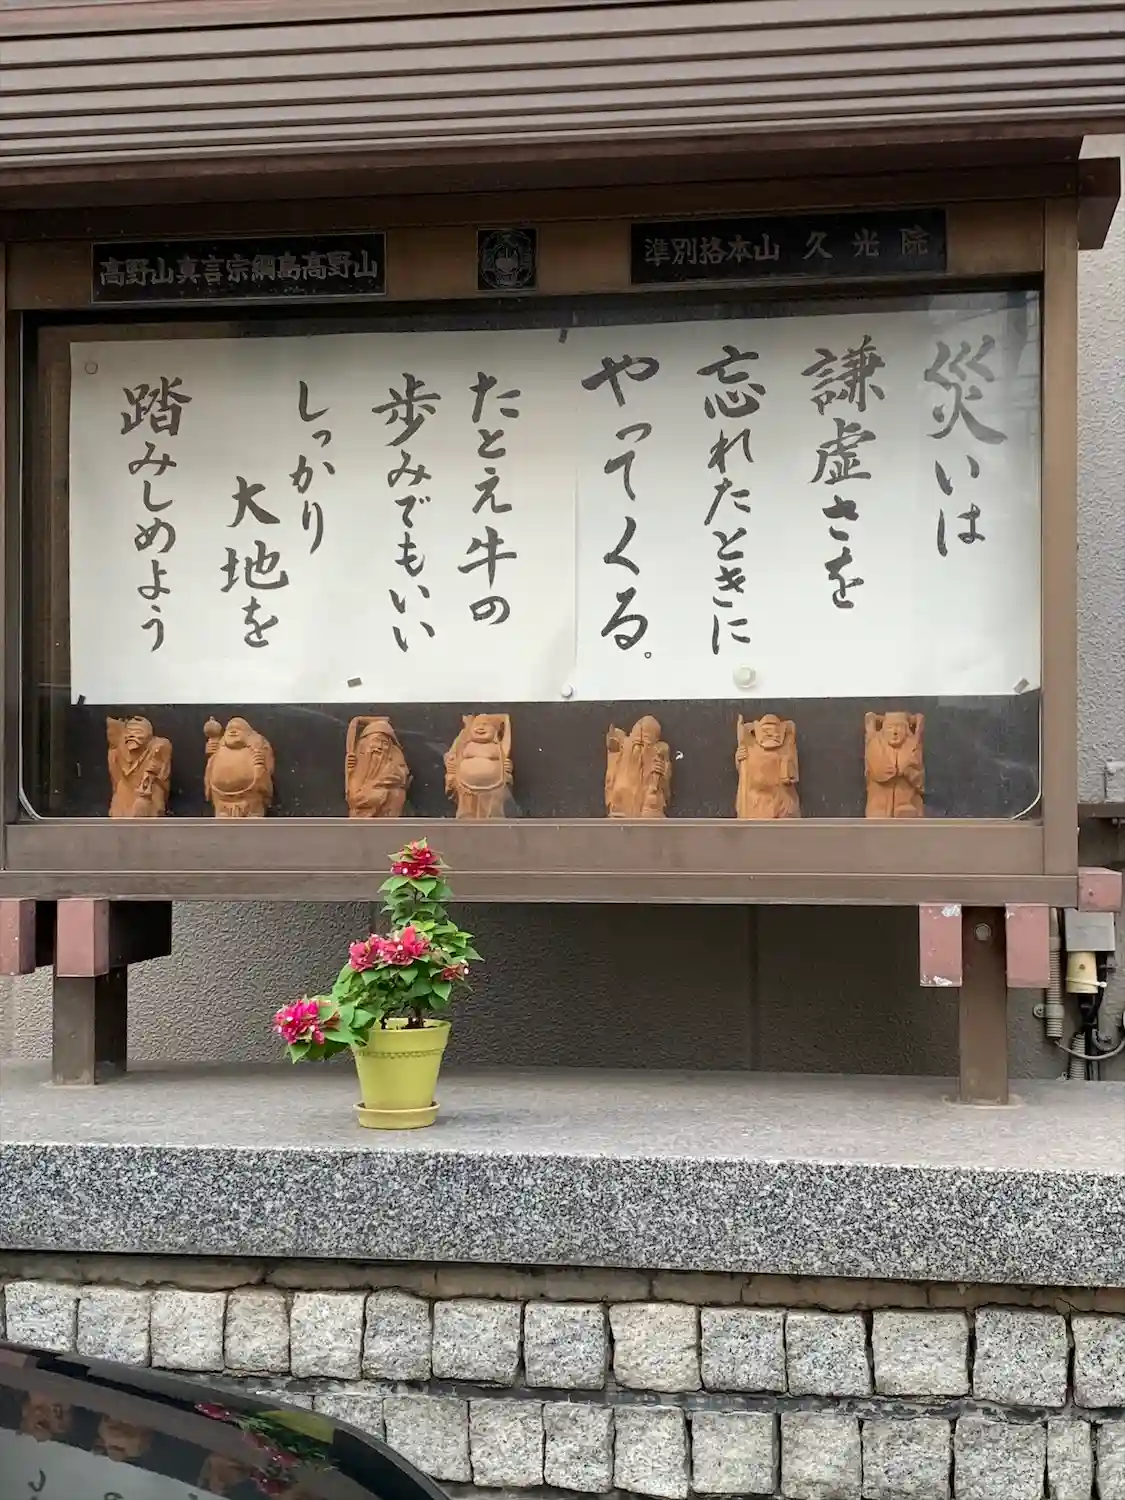 高野山真言宗綱島高野山
準別格本山 久光院
災いは
謙虚さを
忘れたときに
やってくる。
たとえ牛の
歩みでもいい
しっかり
大地を
踏みしめよう